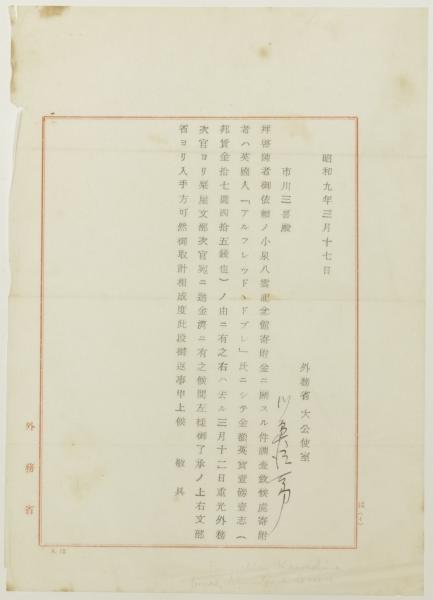 昭和九年三月十七日
外務省 大公使室
市川三喜殿
拝啓陳者御依頼ノ小泉八雲記念館寄附金ニ関スル件調査致候処寄附
者ハ英國人「アルフレッド・ドブレー」氏ニシテ金額英貨壹磅壹志(
邦貨金拾七圓四拾五錢也)ノ由ニ有之右ハ去ル三月十二日重光外務
次官ヨリ栗屋文部次官宛ニ送金濟ニ有之候間左樣御了承ノ上右文部
省ヨリ入手方可然御取計相成度此段御返事申上候 敬具
外務省